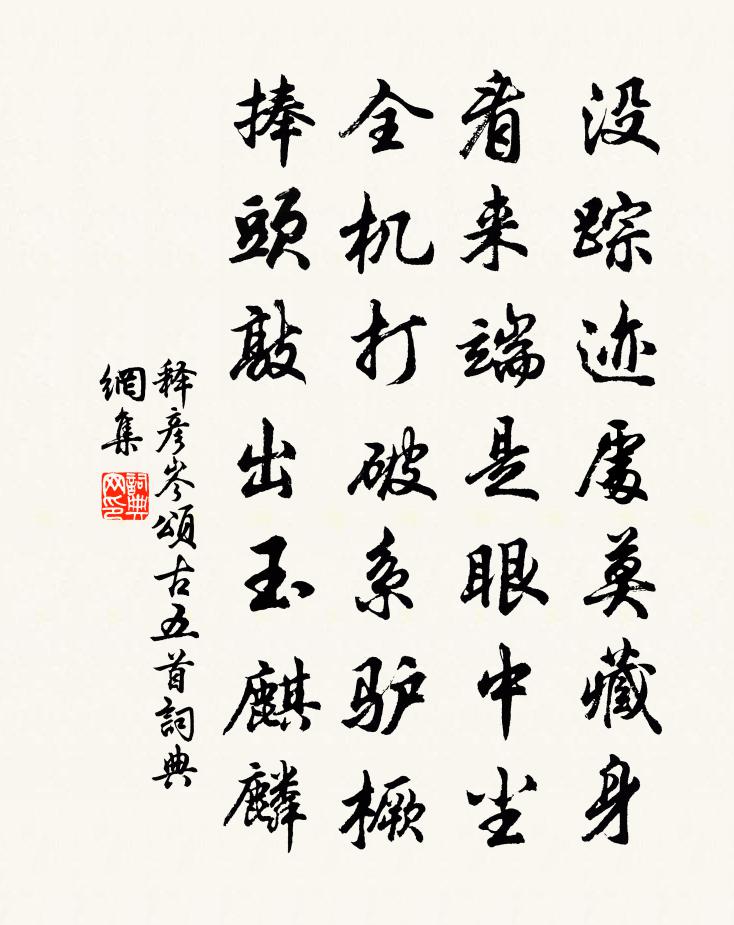 没踪迹處莫藏身
看来端是眼中尘
全机打破系驴橛
捧頭敲出玉麒麟
释彦岑頌古五首詞典
網集
詞典网印